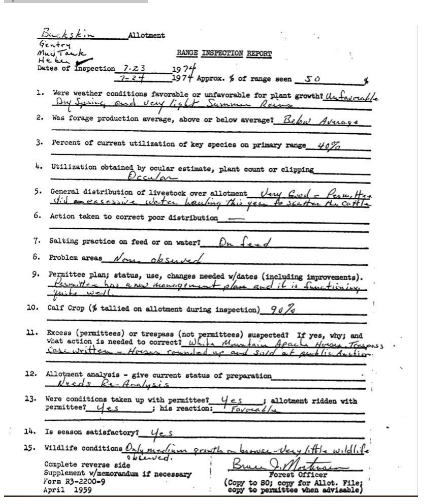 Buckskin Allotment
Gentry
Mud Tank
Heber
RANGE INSPECTION REPORT
Dates of Inspection 7-23 1974
7-24 1974 Approx. % of range seen 50 %
1. Were weather conditions favorable or unfavorable for plant growth? Unfavorable
Dry Spring and very light Summer Rains
2. Was forage production average, above or below average? Below Average
3. Percent of current utilization of key species on primary range 40%
4. Utilization obtained by ocular estimate, plant count or clipping
Occular
5. General distribution of livestock over allotment Very Good - Permittee
did excessive water hauling this year to scatter the cattle
6. Action taken to correct poor distribution —
7. Salting practice on feed or on water? On feed
8. Problem areas None observed
9. Permittee plan; status, use, changes needed w/dates (including improvements).
Permittee has a new management plan and it is functioning
quite well
10. Calf Crop (% tallied on allotment during inspection) 90%
11. Excess (permittees) or trespass (not permittees) suspected? If yes, why; and
what action is needed to correct? White Mountain Apache Horses Trespass
Case written - Horses rounded up and sold at public Auction
12. Allotment analysis - give current status of preparation
Needs Re-Analysis
13. Were conditions taken up with permittee? Yes ; allotment ridden with
permittee? Yes ; his reaction: Favorable
14. Is season satisfactory? Yes
15. Wildlife conditions Only medium growth on browse - Very little wildlife
observed.
Complete reverse side
Supplement w/memorandum if necessary
Form R3-2200-9
April 1959
Bruce J.
Forest Officer
(Copy to SO; copy for Allot. File;
copy to permittee when advisable)